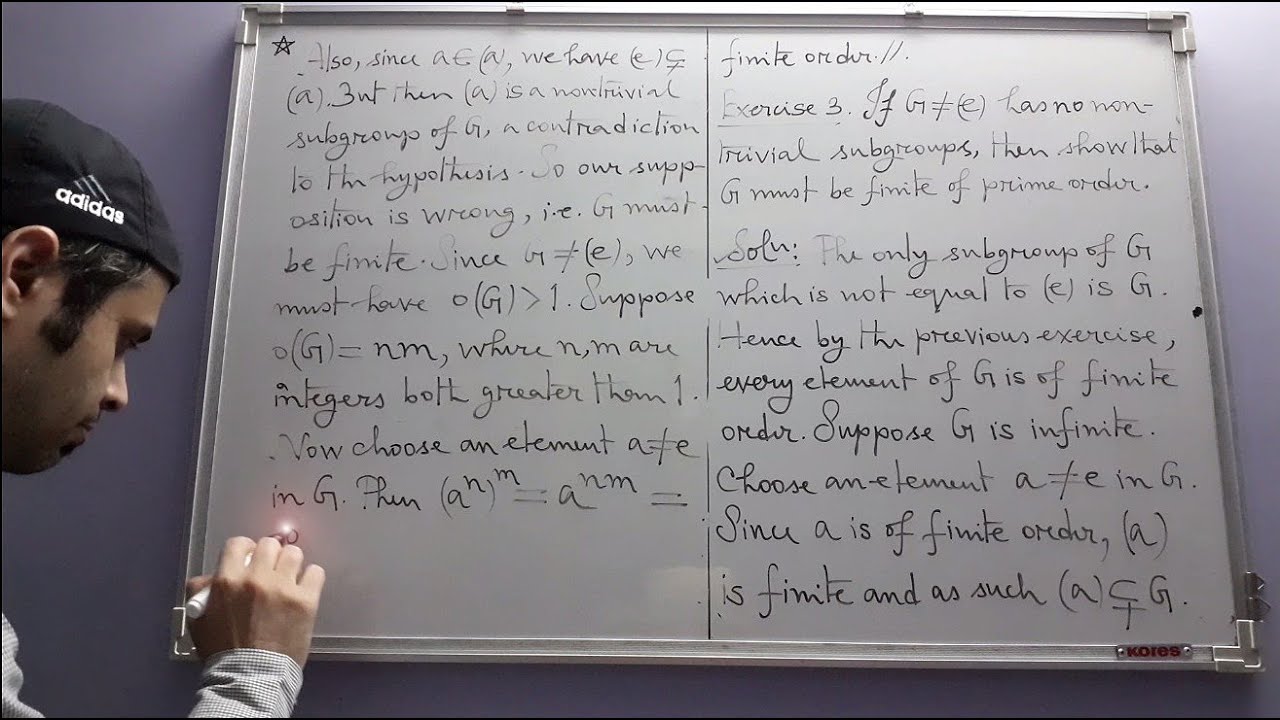 ☆ Also, since a ∈ (a), we have (e) ⊊
(a). But then (a) is a nontrivial
subgroup of G, a contradiction
to the hypothesis. So our supp-
osition is wrong, i.e. G must
be finite. Since G ≠ (e), we
must have o(G) > 1. Suppose
o(G) = nm, where n, m are
integers both greater than 1.
Now choose an element a ≠ e
in G. Then (aⁿ)ᵐ = aⁿᵐ =
finite order.//.
Exercise 3. If G ≠ (e) has no non-
trivial subgroups, then show that
G must be finite of prime order.
Soln: The only subgroup of G
which is not equal to (e) is G.
Hence by the previous exercise,
every element of G is of finite
order. Suppose G is infinite.
Choose an element a ≠ e in G.
Since a is of finite order, (a)
is finite and as such (a) ⊊ G.
adidas
KORES